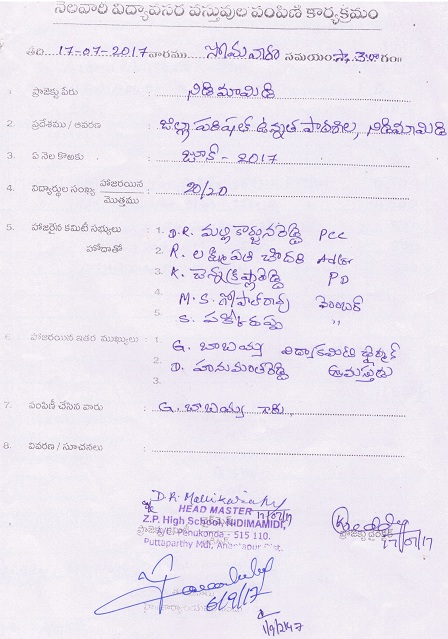 నెలవారీ విద్యావసర వస్తువుల పంపిణీ కార్యక్రమం
తేది 17-07-2017 వారము సోమవారం సమయం సా.
1. ప్రాజెక్టు పేరు : నిడిమామిడి
2. ప్రదేశము / ఆవరణ : జిల్లా పరిషత్ ఉన్నత పాఠశాల, నిడిమామిడి
3. ఏ నెల కొఱకు : జూన్ - 2017
4. విద్యార్థుల సంఖ్య హాజరయిన / మొత్తము : 20/20
5. హాజరైన కమిటీ సభ్యులు హోదాతో : 1. D.R. మల్లికార్జునరెడ్డి PCC
2. R. లక్ష్మీపతి చౌదరి
3. K. చెన్నక్రిష్ణారెడ్డి PD
4. M.S. గోపాలరావు మెంబర్
5. "
6. హాజరయిన ఇతర ముఖ్యులు : 1. G. బాబయ్య విద్యాకమిటి ఛైర్మన్
2. D. హనుమంతరెడ్డి గ్రామస్తుడు
3.
7. పంపిణీ చేసిన వారు : G. బాబయ్య గారు.
8. వివరణ / సూచనలు :
17/07/17
HEAD MASTER
Z.P. High School, NIDIMAMIDI,
Penukonda - 515 110.
Puttaparthy Mdl, Anantapur Dist.
ప్రాజెక్టు డైరెక్టర్
17/07/17
6/9/17